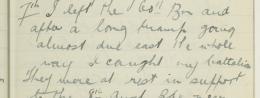 7th I left the 60th Bn and
after a long tramp going
almost due east the whole
way I caught my battalion
They were at rest in support
to the 8th